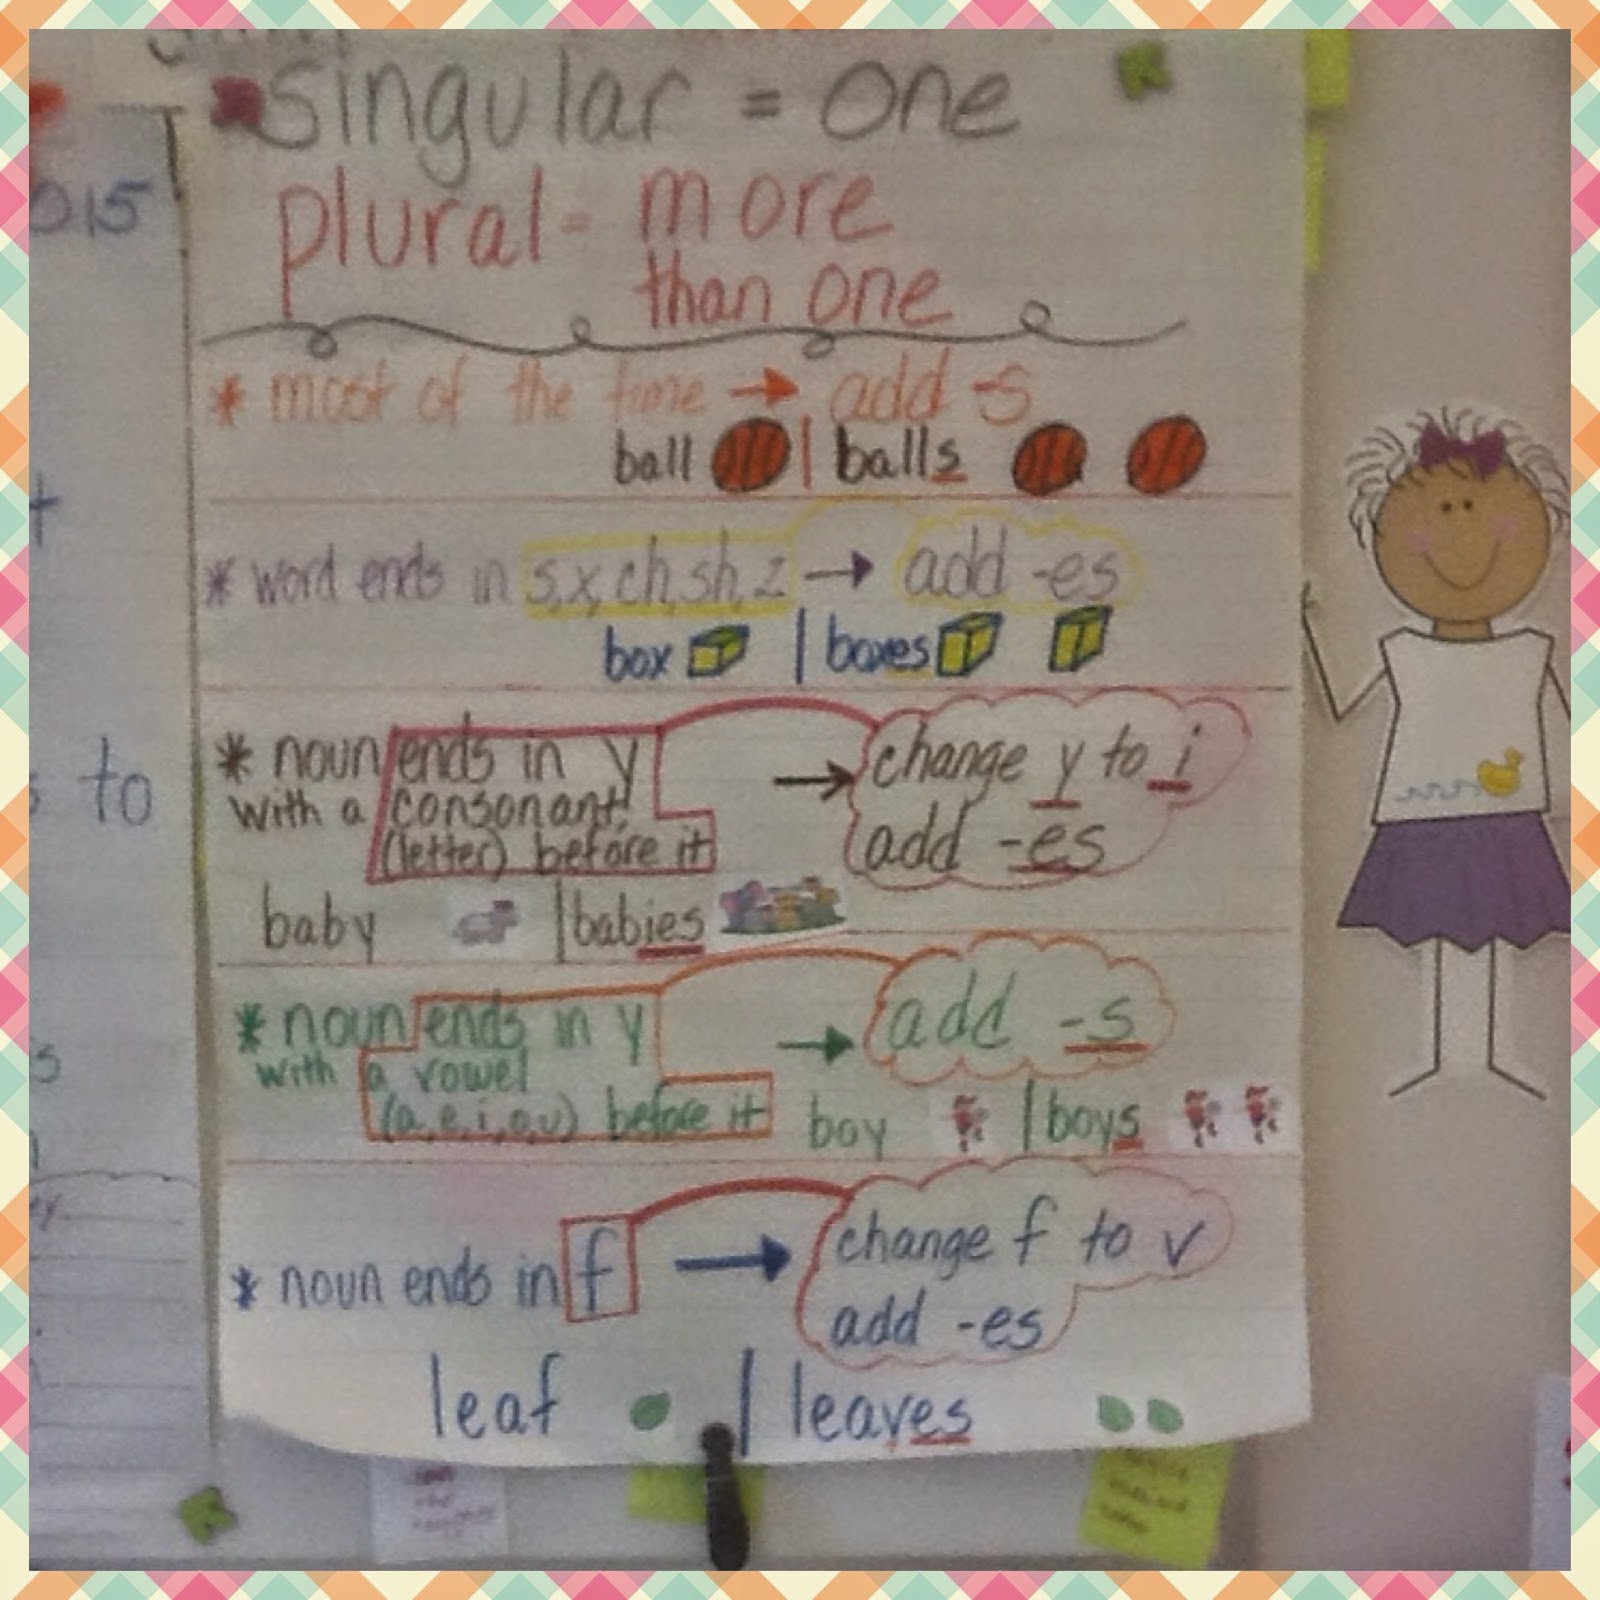 singular = one
plural = more
than one
* most of the time → add -s
ball | balls
* word ends in s, x, ch, sh, z → add -es
box | boxes
* noun ends in y
with a consonant
(letter) before it
→ change y to i
add -es
baby | babies
* noun ends in y
with a vowel
(a, e, i, o, u) before it
→ add -s
boy | boys
* noun ends in f → change f to v
add -es
leaf | leaves
015
to